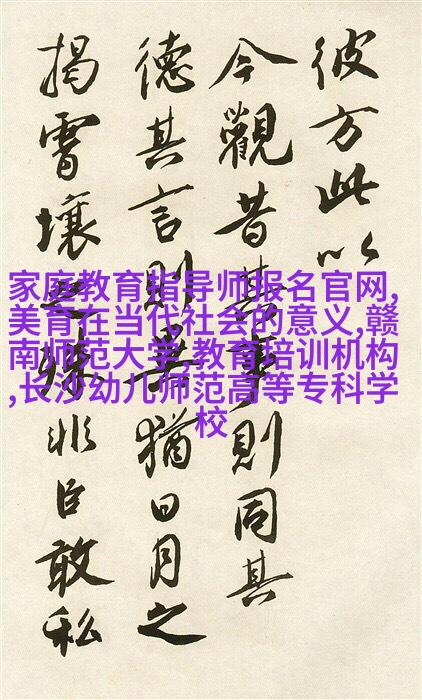 彼方此以
今觀昔其事則同其
德其言則猶日月之
揭霄壤之殊非臣敢私
家庭教育指导师报名官网,
美育在当代社会的意义,赣
南师范大学,教育培训机构
,长沙幼儿师范高等专科学
校